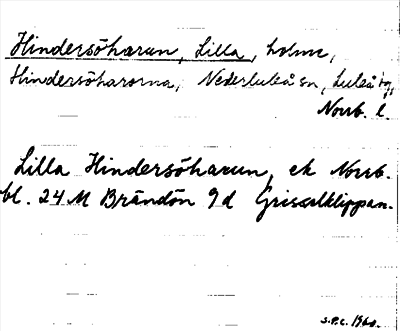 Hindersöharun, Lilla, holme,
Hindersöharorna, Nederluleå sn, Luleå tg,
Norrb. l.
Lilla Hindersöharun, ek Norrb.
bl. 24 M Brändön 9d Grisselklippan.
S.P.C. 1960.